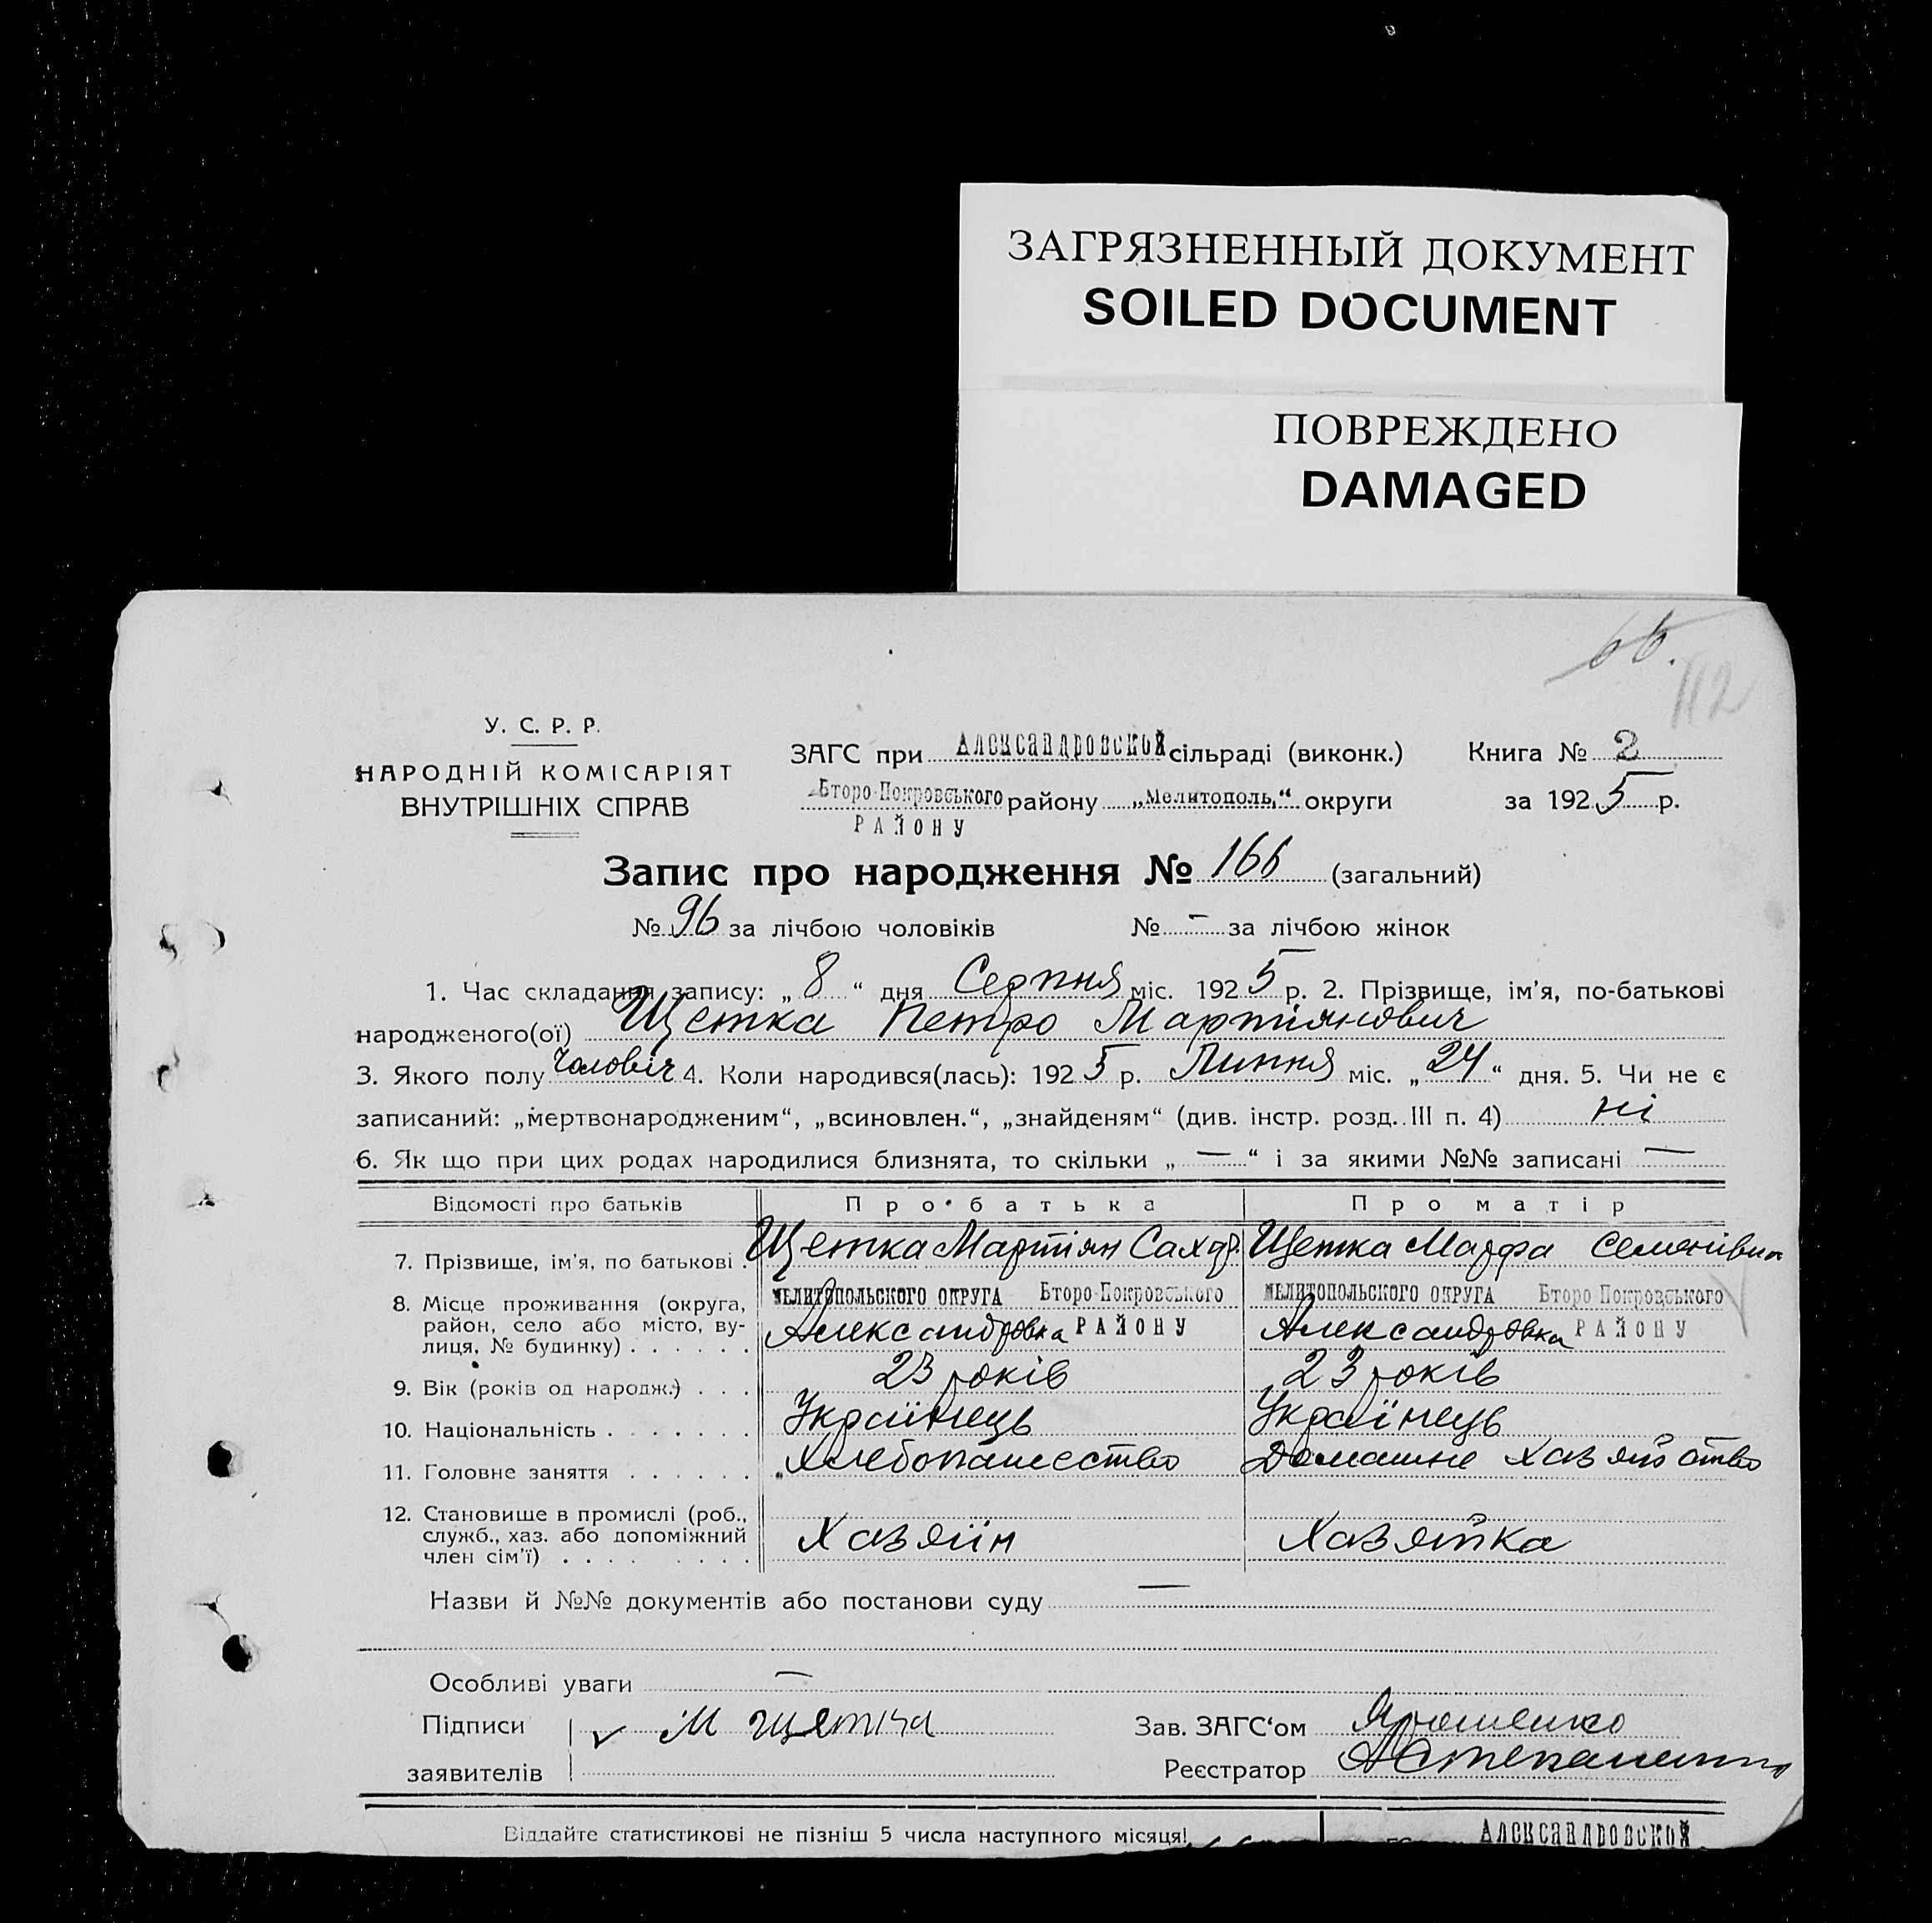 ЗАГРЯЗНЕННЫЙ ДОКУМЕНТ
SOILED DOCUMENT
ПОВРЕЖДЕНО
DAMAGED
66.
112
У. С. Р. Р.
НАРОДНІЙ КОМІСАРІЯТ
ВНУТРІШНІХ СПРАВ
ЗАГС при Александровской сільраді (виконк.) Книга № 2
Второ-Покровського району „Мелитополь“ округи за 1925 р.
РАЙОНУ
Запис про народження № 166 (загальний)
№ 96 за лічбою чоловіків № — за лічбою жінок
1. Час складання запису: „8“ дня Серпня міс. 1925 р. 2. Прізвище, ім’я, по-батькові
народженого(ої) Щетка Петро Мартіянович
3. Якого полу чоловіч 4. Коли народився(лась): 1925 р. Липня міс. „24“ дня. 5. Чи не є
записаний: „мертвонародженим“, „всиновлен.“, „знайденям“ (див. інстр. розд. III п. 4) ні
6. Як що при цих родах народилися близнята, то скільки „—“ і за якими №№ записані —
Відомості про батьків Про батька Про матір
7. Прізвище, ім’я, по батькові . Щетка Мартіян Щетка Марфа Семенівна
8. Місце проживання (округа, МЕЛИТОПОЛЬСКОГО ОКРУГА Второ-Покровського МЕЛИТОПОЛЬСКОГО ОКРУГА Второ-Покровського
район, село або місто, ву- Александровка РАЙОНУ Александровка РАЙОНУ
лиця, № будинку) . . . . . .
9. Вік (років од народж.) . . . 23 років 23 років
10. Національність . . . . . . . Українець Українець
11. Головне заняття . . . . . . Хлебопашество Домашне хазяйство
12. Становище в промислі (роб.,
служб., хаз. або допоміжний Хазяїн Хазяйка
член сім’ї) . . . . . . . . .
Назви й №№ документів або постанови суду —
Особливі уваги —
Підписи М Щетка Зав. ЗАГС‘ом Ярошенко
заявителів Реєстратор
Віддайте статистикові не пізніш 5 числа наступного місяця! Александровской